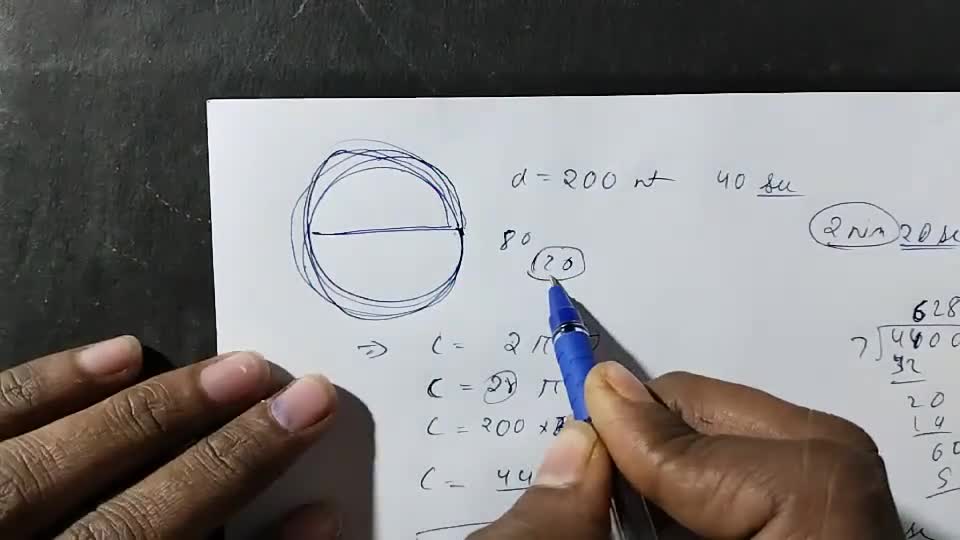 d = 200 mt 40 sec
2 min 20 se
80
120
⇒ C = 2 π
C = 2r π
C = 200 ×
C = 44
628
7 4400
42
20
14
60
5